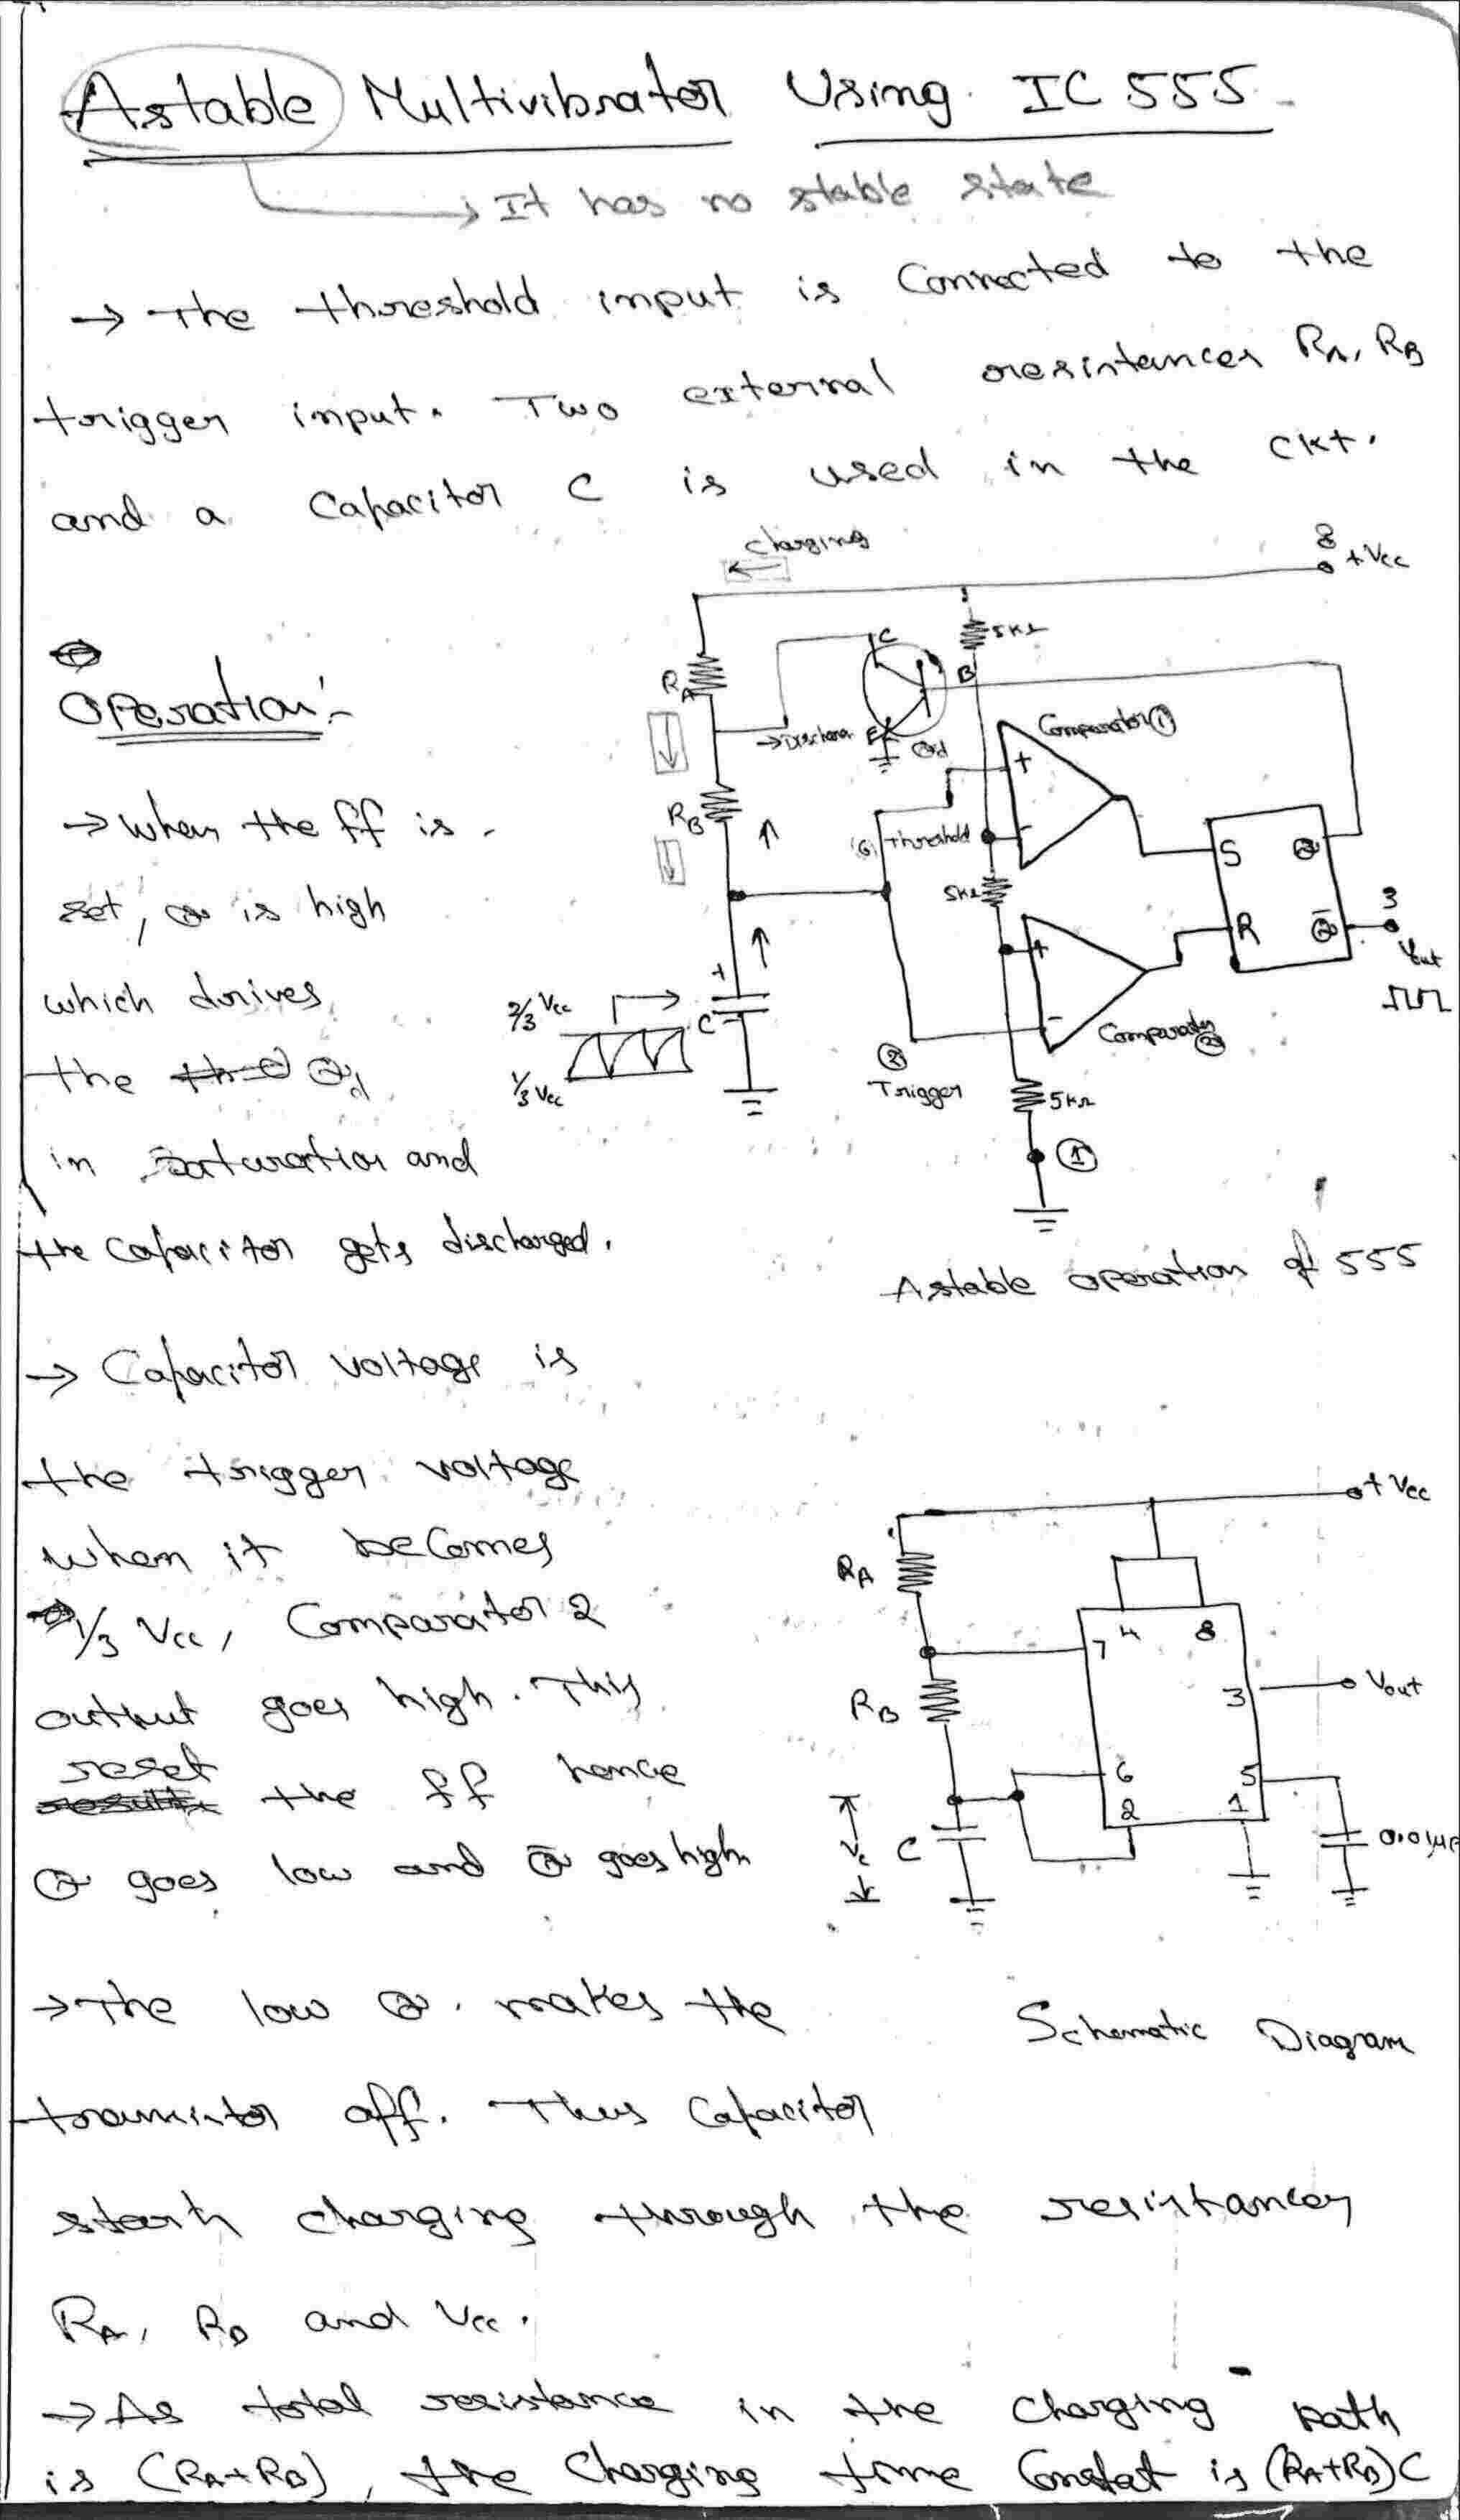 Astable Multivibrator Using IC 555
→ It has no stable state
→ The threshold input is Connected to the
trigger input. Two external resistances RA, RB
and a Capacitor C is used in the Ckt.
Charging
←
8
+Vcc
Operation:-
→ When the ff is
set, Q is high
which drives
the Qd
in saturation and
the capacitor gets discharged.
RA
RB
C
B
E
Qd
5KΩ
Comparator ①
+
-
(6) threshold
5KΩ
S
Q
R
Q̄
3
Vout
+
-
Comparator ②
② Trigger
5KΩ
①
2/3 Vcc
1/3 Vcc
+
C
-
Astable operation of 555
→ Capacitor voltage is
the trigger voltage
when it becomes
1/3 Vcc, Comparator 2
output goes high. This
reset the ff hence
Q goes low and Q̄ goes high.
+Vcc
RA
RB
7
4
8
3
Vout
6
2
5
1
Vc
C
0.01μF
Schematic Diagram
→ The low Q. makes the
transistor off. Thus Capacitor
starts charging through the resistances
RA, RB and Vcc.
→ As total resistance in the charging path
is (RA+RB), the Charging time Constat is (RA+RB)C